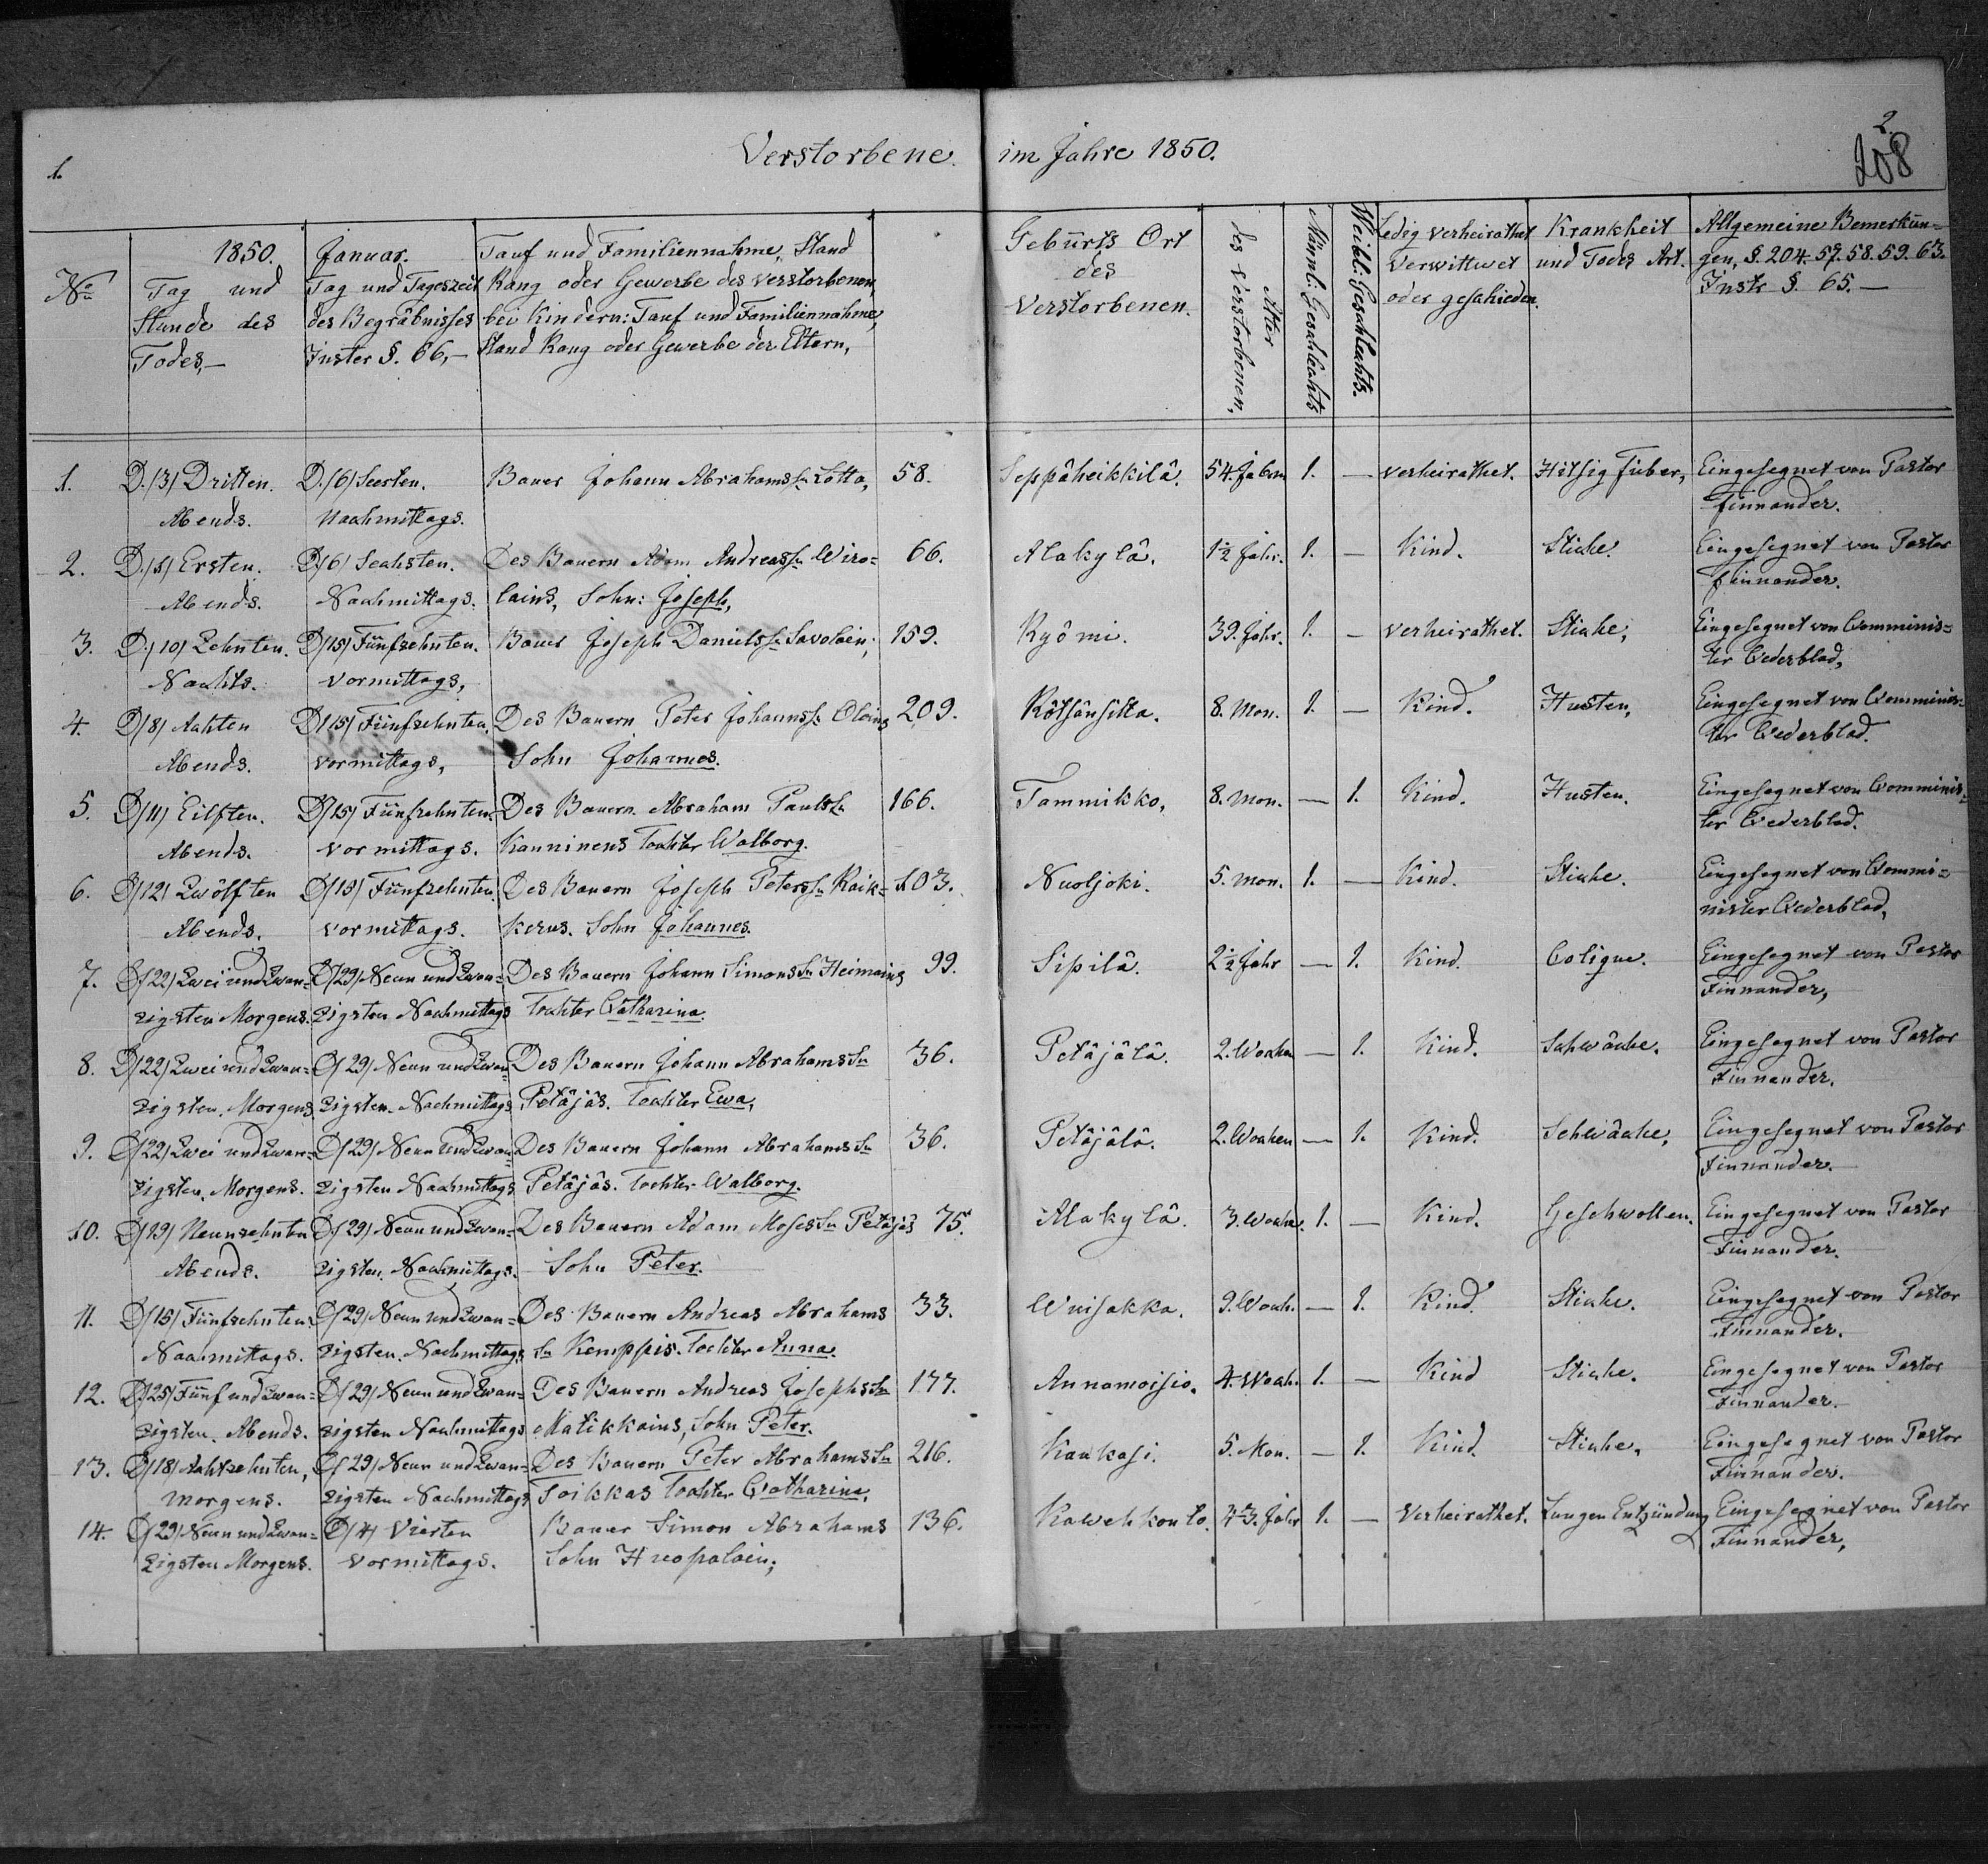 1.
Verstorbene im Jahre 1850.
2.
208
No
1850.
Tag und
Stunde des
Todes,—
Januar.
Tag und Tageszeit
des Begräbnisses
Inster §. 66,—
Tauf und Familiennahme, Stand
Rang oder Gewerbe des Verstorbenen,
bei Kindern: Tauf und Familiennahme,
Stand Rang oder Gewerbe der Eltern,
Geburts Ort
des
Verstorbenen.
Alter
des Verstorbenen,
Männl: Geschlechts
Weibl: Geschlechts.
Ledig verheirathet
Verwittwet
oder geschieden.
Krankheit
und Todes Art.
Allgemeine Bemerkun-
gen, §. 204. 57. 58. 59. 63.
Instr §. 65.—
1. D./3/ Dritten. D./6/ Secsten. Bauer Johann Abrahams Sn Lotta, 58. Seppäheikkilä. 54. Jahre 1. — verheirathet. Hitsig fieber, Eingesegnet von Pastor
Abends. Nachmittags. Finnander.
2. D./1/ Ersten. D/6/ Sechsten. Des Bauern Adam Andreas Sn Wiro= 66. Alakylä. 1½ Jahr. 1. — Kind. Stiche. Eingesegnet von Pastor
Abends. Nachmittags. lains, Sohn: Joseph, Finnander.
3. D./10/ Zehnten. D/15/ Fünfzehnten. Bauer Joseph Daniels Sn Savolain, 159. Ryömi. 39. Jahr. 1. — verheirathet. Stiche, Eingesegnet von Comminis=
Nachts. Vormittags, ter Cederblad,
4. D/8/ Achten D/15/ Fünfzehnten. Des Bauern Peter Johanns Sn Olains 209. Rötsänsitta. 8. Mon. 1. — Kind. Husten, Eingesegnet von Comminis=
Abends. Vormittags, Sohn Johannes. ter Cederblad.
5. D/11/ Eilften. D/15/ Fünfzehnten. Des Bauern Abraham Pauls Sn 166. Tammikko, 8. Mon. — 1. Kind. Husten. Eingesegnet von Comminis=
Abends. Vormittags. Kanninens Tochter Walborg. ter Cederblad.
6. D/12/ Zwölften D/15/ Fünfzehnten. Des Bauern Joseph Peters Sn Raik= 103. Nuoljoki. 5. Mon. 1. — Kind. Stiche. Eingesegnet von Commi=
Abends. Vormittags. kerus. Sohn Johannes. nister Cederblad,
7. D/22/ Zwei und Zwan= D/29/ Neun und Zwan= Des Bauern Johann Simons Sn Heimains 99. Sipilä. 2½ Jahr — 1. Kind. Colique. Eingesegnet von Pastor
zigsten Morgens. zigsten Nachmittags Tochter Catharina. Finnander,
8. D/22/ Zwei und Zwan= D/29/ Neun und Zwan= Des Bauern Johann Abrahams Sn 36. Petäjälä. 2. Wochen — 1. Kind. Schwäche. Eingesegnet von Pastor
zigsten. Morgens. zigsten. Nachmittags Petäjäs. Tochter Ewa, Finnander.
9. D/22/ Zwei und Zwan= D/29/ Neun und Zwan= Des Bauern Johann Abrahams Sn 36. Petäjälä. 2. Wochen — 1. Kind. Schwäche, Eingesegnet von Pastor
zigsten. Morgens. zigsten Nachmittags Petäjäs. Tochter Walborg. Finnander.
10. D/19/ Neunzehnten D/29/ Neun und Zwan= Des Bauern Adam Moses Sn Petäjäs 75. Alakylä. 3. Woche. 1. — Kind. Geschwollen. Eingesegnet von Pastor
Abends. zigsten. Nachmittags. Sohn Peter. Finnander.
11. D/15/ Fünfzehnten D/29/ Neun und Zwan= Des Bauern Andreas Abrahams 33. Wuisakka. 9. Woch. — 1. Kind. Stiche. Eingesegnet von Pastor
Nachmittags. zigsten. Nachmittags Sn Kemppis. Tochter Anna. Finnander.
12. D/25/ Fünf und Zwan= D/29/ Neun und Zwan= Des Bauern Andreas Josephs Sn 177. Annamoisio. 4. Woch. 1. — Kind Stiche. Eingesegnet von Pastor
zigsten. Abends. zigsten Nachmittags Matikkains, Sohn Peter. Finnander.
13. D/18/ Achtzehnten, D/29/ Neun und Zwan= Des Bauern Peter Abrahams Sn 216. Kaukasi. 5. Mon. — 1. Kind. Stiche. Eingesegnet von Pastor
Morgens. zigsten Nachmittags Toikkas Tochter Catharina. Finnander.
14. D/29/ Neun und Zwan= D/4/ Vierten Bauer Simon Abrahams 136. Kawehkonto. 43. Jahr 1. — Verheirathet. Lungen Entzündung Eingesegnet von Pastor
zigsten Morgens. Vormittags. Sohn Huopolain; Finnander,